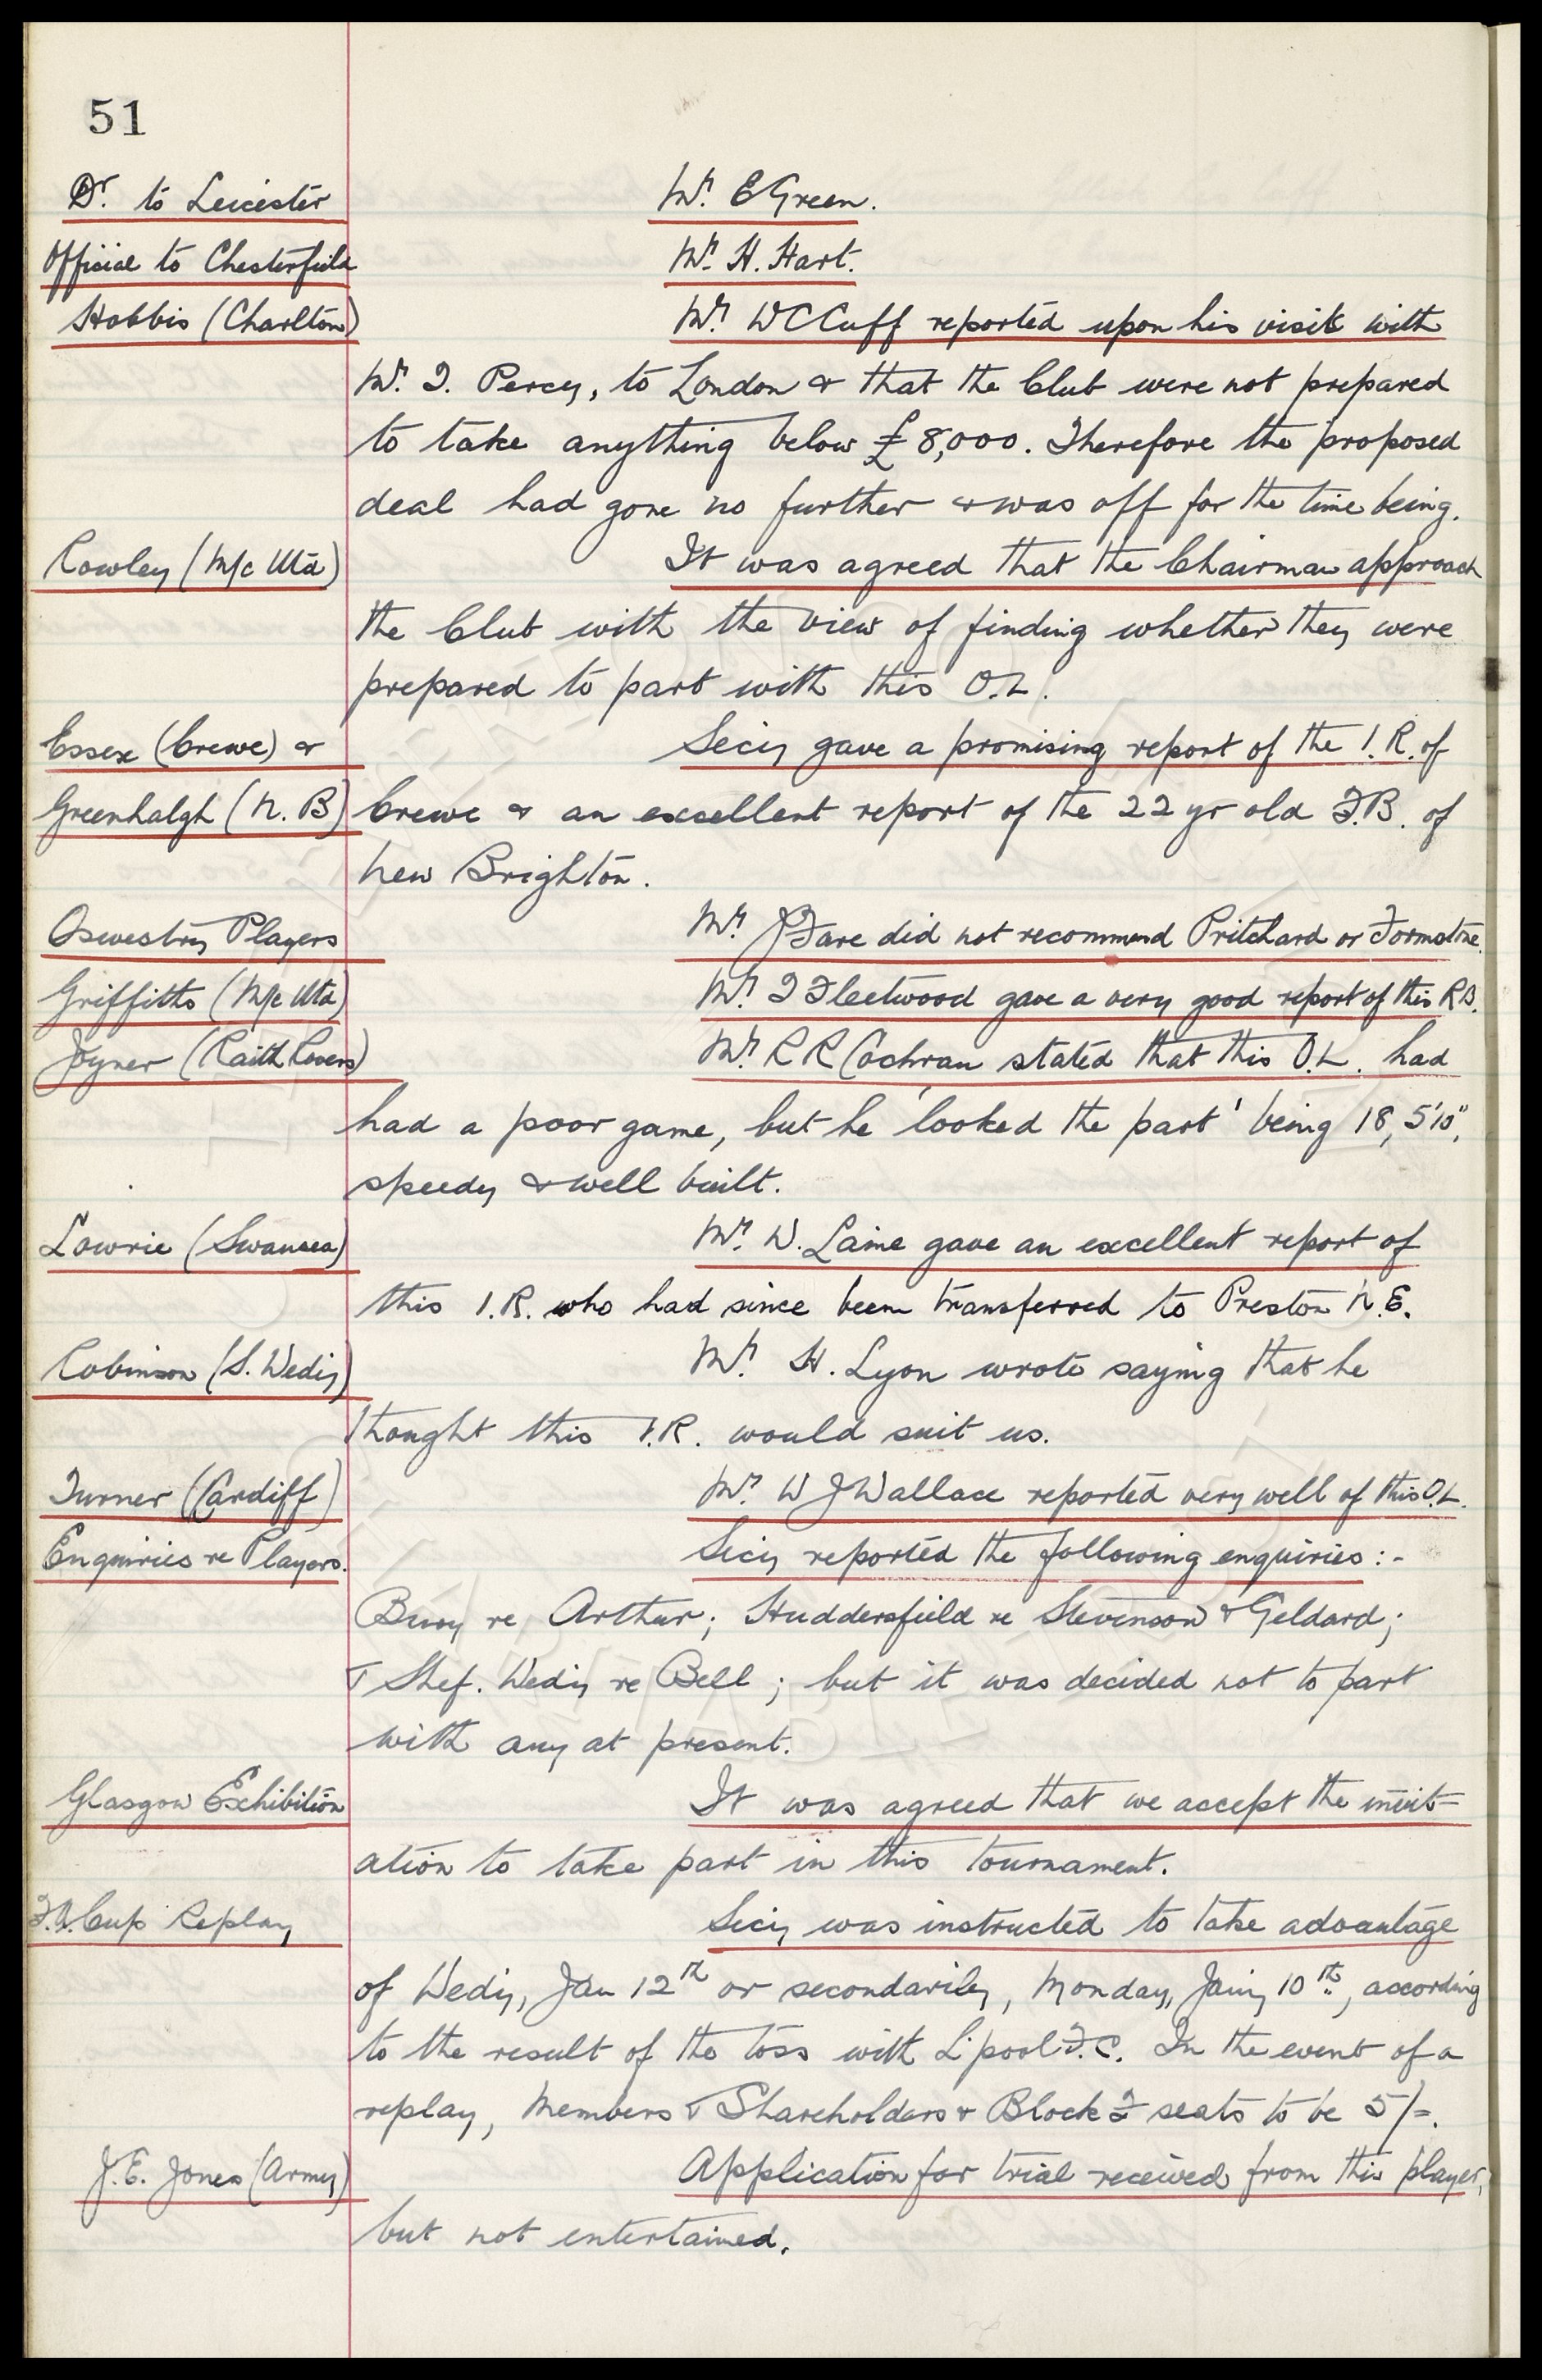 51
Dr. to Leicester Mr. E Green.
Official to Chesterfield Mr. H. Hart.
Hobbis (Charlton) Mr. W C Cuff reported upon his visit with
Mr. T. Percy, to London & that the Club were not prepared
to take anything below £8,000. Therefore the proposed
deal had gone no further & was off for the time being.
Rowley (M/c Utd) It was agreed that the Chairman approach
the Club with the view of finding whether they were
prepared to part with this O.L.
Essex (Crewe) & Secy gave a promising report of the I.R. of
Greenhalgh (N. B) Crewe & an excellent report of the 22 yr old F.B. of
New Brighton.
Oswestry Players Mr. J Fare did not recommend Pritchard or Formstone.
Griffiths (M/c Utd) Mr. T Fleetwood gave a very good report of this R B.
Joyner (Raith Rovers) Mr. R R Cochran stated that this O.L. had
had a poor game, but he 'looked the part' being 18, 5'10",
speedy & well built.
Lowrie (Swansea) Mr. W. Laine gave an excellent report of
this I.R. who had since been transferred to Preston N.E.
Robinson (S. Wedy) Mr. H. Lyon wrote saying that he
thought this I.R. would suit us.
Turner (Cardiff) Mr. W J Wallace reported very well of this O.L.
Enquiries re Players. Secy reported the following enquiries :-
Bury re Arthur; Huddersfield re Stevenson & Geldard;
& Shef. Wedy re Bell; but it was decided not to part
with any at present.
Glasgow Exhibition It was agreed that we accept the invit-
ation to take part in this tournament.
F.A. Cup Replay Secy was instructed to take advantage
of Wedy, Jan 12th or secondarily, Monday, Jany 10th, according
to the result of the toss with L'pool F.C. In the event of a
replay, Members & Shareholders & Block F seats to be 5/=.
J.E. Jones (Army) Application for trial received from this player,
but not entertained.